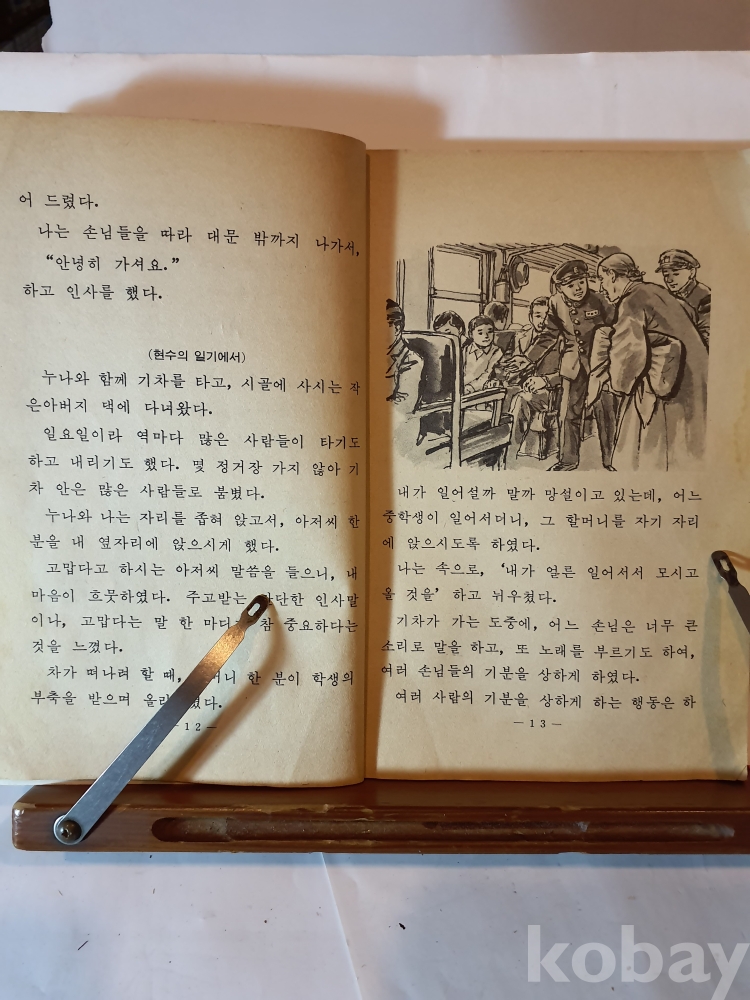 어 드렸다.
나는 손님들을 따라 대문 밖까지 나가서,
“안녕히 가셔요.”
하고 인사를 했다.
(현수의 일기에서)
누나와 함께 기차를 타고, 시골에 사시는 작
은아버지 댁에 다녀왔다.
일요일이라 역마다 많은 사람들이 타기도
하고 내리기도 했다. 몇 정거장 가지 않아 기
차 안은 많은 사람들로 붐볐다.
누나와 나는 자리를 좁혀 앉고서, 아저씨 한
분을 내 옆자리에 앉으시게 했다.
고맙다고 하시는 아저씨 말씀을 들으니, 내
마음이 흐뭇하였다. 주고받는 인사말
이나, 고맙다는 말 한 참 중요하다는
것을 느꼈다.
차가 떠나려 할 때, 한 분이 학생의
부축을 받으며
— 12 —
내가 일어설까 말까 망설이고 있는데, 어느
중학생이 일어서더니, 그 할머니를 자기 자리
에 앉으시도록 하였다.
나는 속으로, ‘내가 얼른 일어서서 모시고
올 것을’ 하고 뉘우쳤다.
기차가 가는 도중에, 어느 손님은 너무 큰
소리로 말을 하고, 또 노래를 부르기도 하여,
여러 손님들의 기분을 상하게 하였다.
여러 사람의 기분을 상하게 하는 행동은 하
— 13 —
kobay